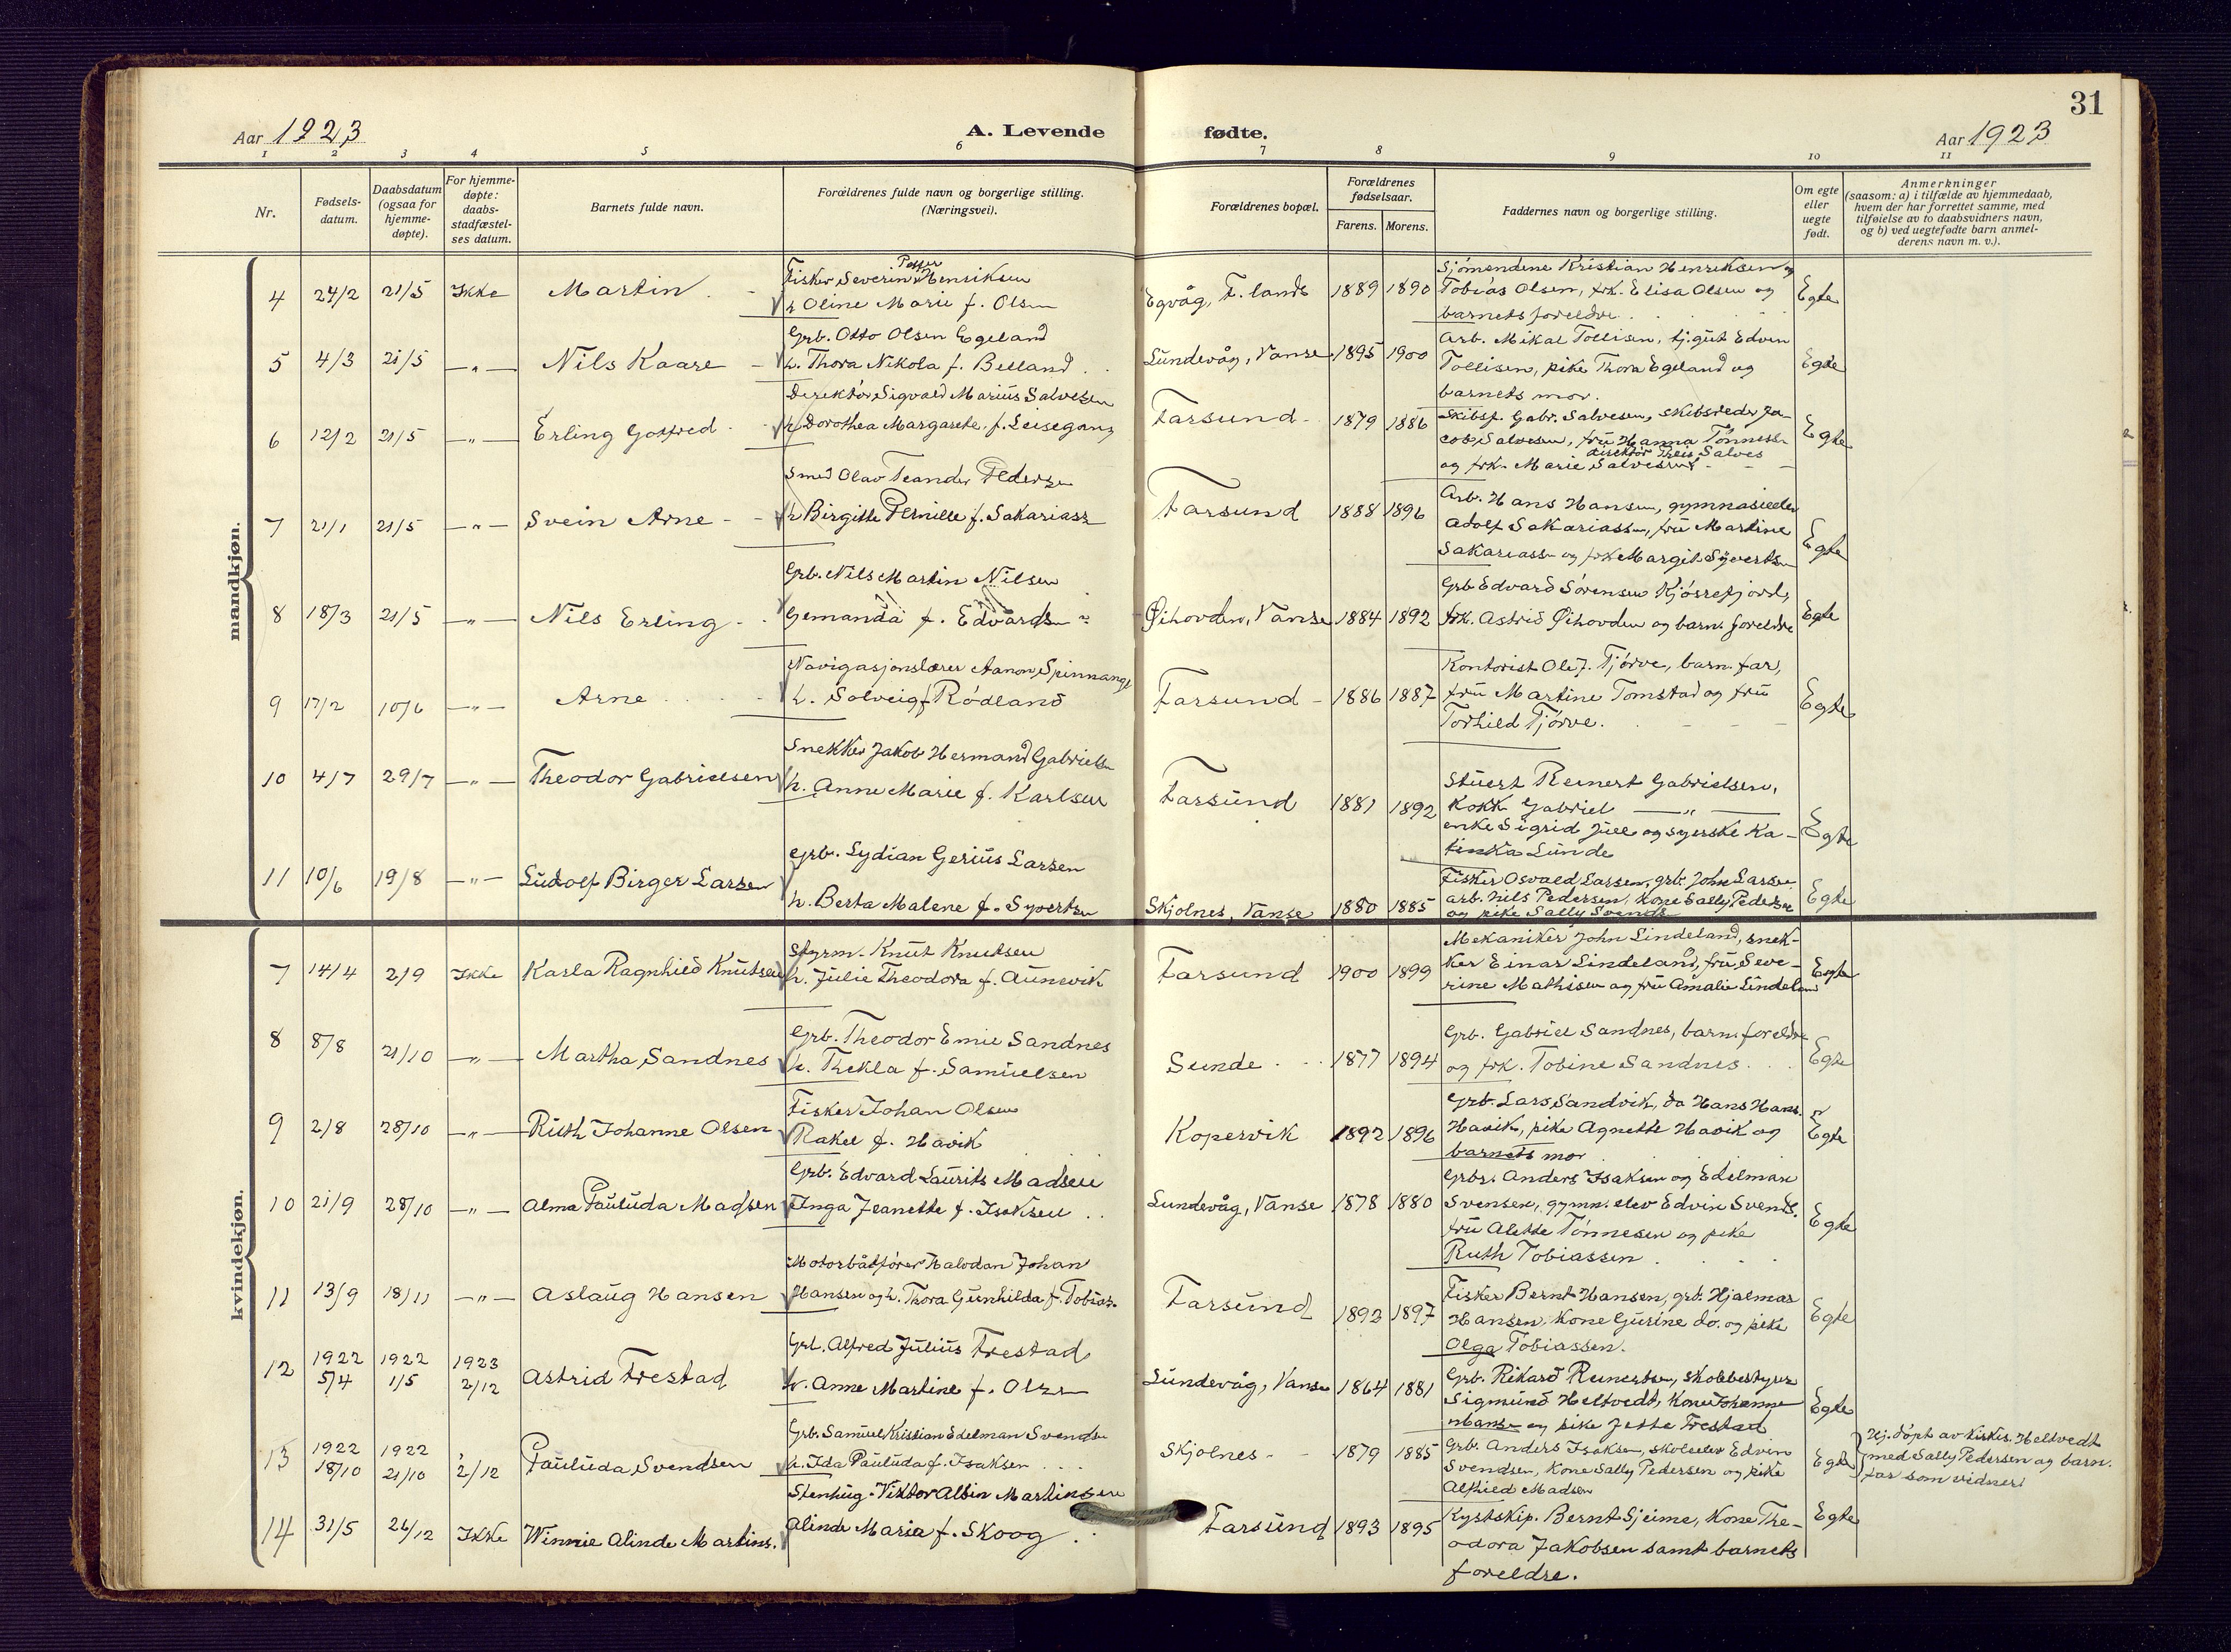 31
Aar 1923
A. Levende fødte.
Aar 1923
1 2 3 4 5 6 7 8 9 10 11
Nr.
Fødsels-
datum.
Daabsdatum
(ogsaa for
hjemme-
døpte).
For hjemme-
døpte:
daabs-
stadfæstel-
ses datum.
Barnets fulde navn.
Forældrenes fulde navn og borgerlige stilling.
(Næringsvei).
Forældrenes bopæl.
Forældrenes
fødselsaar.
Farens. Morens.
Faddernes navn og borgerlige stilling.
Om egte
eller
uegte
født.
Anmerkninger
(saasom: a) i tilfælde av hjemmedaab,
hvem der har forrettet samme, med
tilføielse av to daabsvidners navn,
og b) ved uegtefødte barn anmel-
derens navn m. v.).
mandkjøn.
4 24/2 21/5 Ikke Martin
Fisker Severin Henriksen
h Oline Marie f. Olsen
Egvåg, F. lands 1889 1890
Sjömendene Kristian Henriksen og
Tobias Olsen, frk. Elisa Olsen og
barnets foreldre.
Egte
5 4/3 21/5 -„- Nils Kaare
Grb. Otto Olsen Egeland
h. Thora Nikola f. Belland
Lundevåg, Vanse 1895 1900
Arb. Mikal Tollisen, tj.gut Edvin
Tollisen, pike Thora Egeland og
barnets mor.
Egte
6 12/2 21/5 -„- Erling Gotfred
Direktör Sigvald Marius Salvesen
h. Dorothea Margarete f. Leisegang
Farsund 1879 1886
Skibsf. Gabr. Salvesen, skibsreder Ja-
cob Salvesen, fru Hanna Tönness
direktör Theis Salves
og frk. Marie Salvesen
Egte
7 21/1 21/5 -„- Svein Arne
Smed Olav Teander Pedersen
h Birgitte Pernille f. Sakariass
Farsund 1888 1896
Arb. Hans Hansen, gymnasieelev
Adolf Sakariassen, fru Martine
Sakariassen og frk Margit Syvertsen
Egte
8 18/3 21/5 -„- Nils Erling
Grb. Nils Martin Nilsen
Gemanda f. Edvardsen
Øihovden, Vanse 1884 1892
Grb Edvard Sörensen Kjörrefjord,
frk. Astrid Øihovden og barn. foreldre
Egte
9 17/2 10/6 -„- Arne
Navigasjonslærer Aanon Spinnange
h. Solveig f Rödland
Farsund 1886 1887
Kontorist Ole J. Tjörve, barn. far,
fru Martine Tomstad og fru
Torhild Tjörve.
Egte
10 4/7 29/7 -„- Theodor Gabrielsen
Snekker Jakob Hermand Gabrielsen
h. Anne Marie f. Karlsen
Farsund 1881 1892
Stuert Reinert Gabrielsen,
Kokk Gabriel -„-
enke Sigrid Juel og syerske Ka-
tinka Lunde
Egte
11 10/6 19/8 -„- Ludolf Birger Larsen
Grb. Lydian Gerius Larsen
h. Berta Malene f. Syvertsen
Skjolnes, Vanse 1880 1885
Fisker Osvald Larsen, grb. John Larsen
arb. Nils Pedersen, Kone Sally Pedersen
og pike Sally Svends
Egte
kvindekjøn.
7 14/4 2/9 Ikke Karla Ragnhild Knutsen
Styrm. Knut Knutsen
h. Julie Theodora f. Aunevik
Farsund 1900 1899
Mekaniker John Lindeland, snek-
ker Einar Lindeland, fru Seve-
rine Mathisen og fru Amalie Lindeland
Egte
8 8/8 21/10 -„- Martha Sandnes
Grb. Theodor Emil Sandnes
h. Thekla f. Samuelsen
Sunde 1877 1894
Grb. Gabriel Sandnes, barn. foreldre
og frk. Tobine Sandnes
Egte
9 2/8 28/10 -„- Ruth Johanne Olsen
Fisker Johan Olsen
Rakel f. Havik
Kopervik 1892 1896
Grb. Lars Sandvik, do Hans Hans.
Havik, pike Agnethe Havik og
barnets mor
Egte
10 21/9 28/10 -„- Alma Pauluda Madsen
Grb. Edvard Laurits Madsen
Inga Jeanette f. Isaksen
Lundevåg, Vanse 1878 1880
Grbr. Anders Isaksen og Edelman
Svensen, gymn. elev Edvin Svends.
fru Alette Tönnesen og pike
Ruth Tobiassen
Egte
11 13/9 18/11 -„- Aslaug Hansen
Motorbåtförer Halvdan Johan
Hansen og h. Thora Gunhilda f. Tobias.
Farsund 1892 1897
Fisker Bernt Hansen, grb. Hjalmar
Hansen, Kone Gurine do. og pike
Olga Tobiassen.
Egte
12 1922 5/4 1922 1/5 1923 2/12 Astrid Frestad
Grb. Alfred Julius Frestad
h. Anne Martine f. Olsen
Lundevåg, Vanse 1864 1881
Grb. Rikard Reinertsen, skolebestyrer
Sigmund Heltvedt, Kone Johanne
Hansen og pike Jette Frestad
Egte
13 1922 18/10 1922 21/10 2/12 Pauluda Svendsen
Grb. Samuel Kristian Edelman Svendsen
h. Ida Pauluda f. Isaksen
Skjolnes 1879 1885
Grb. Anders Isaksen, skoleelev Edvin
Svendsen, Kone Sally Pedersen og pike
Alfhild Madsen
Egte
Hj. döpt av Heltvedt
med Sally Pedersen og barn.
far som vidner.
14 31/5 26/12 Ikke Winnie Alinde Martins.
Stenhug. Viktor Albin Martinsen
Alinde Maria f. Skoog
Farsund 1893 1895
Kystskip. Bernt Gjeime, Kone The-
odora Jakobsen samt barnets
foreldre.
Egte